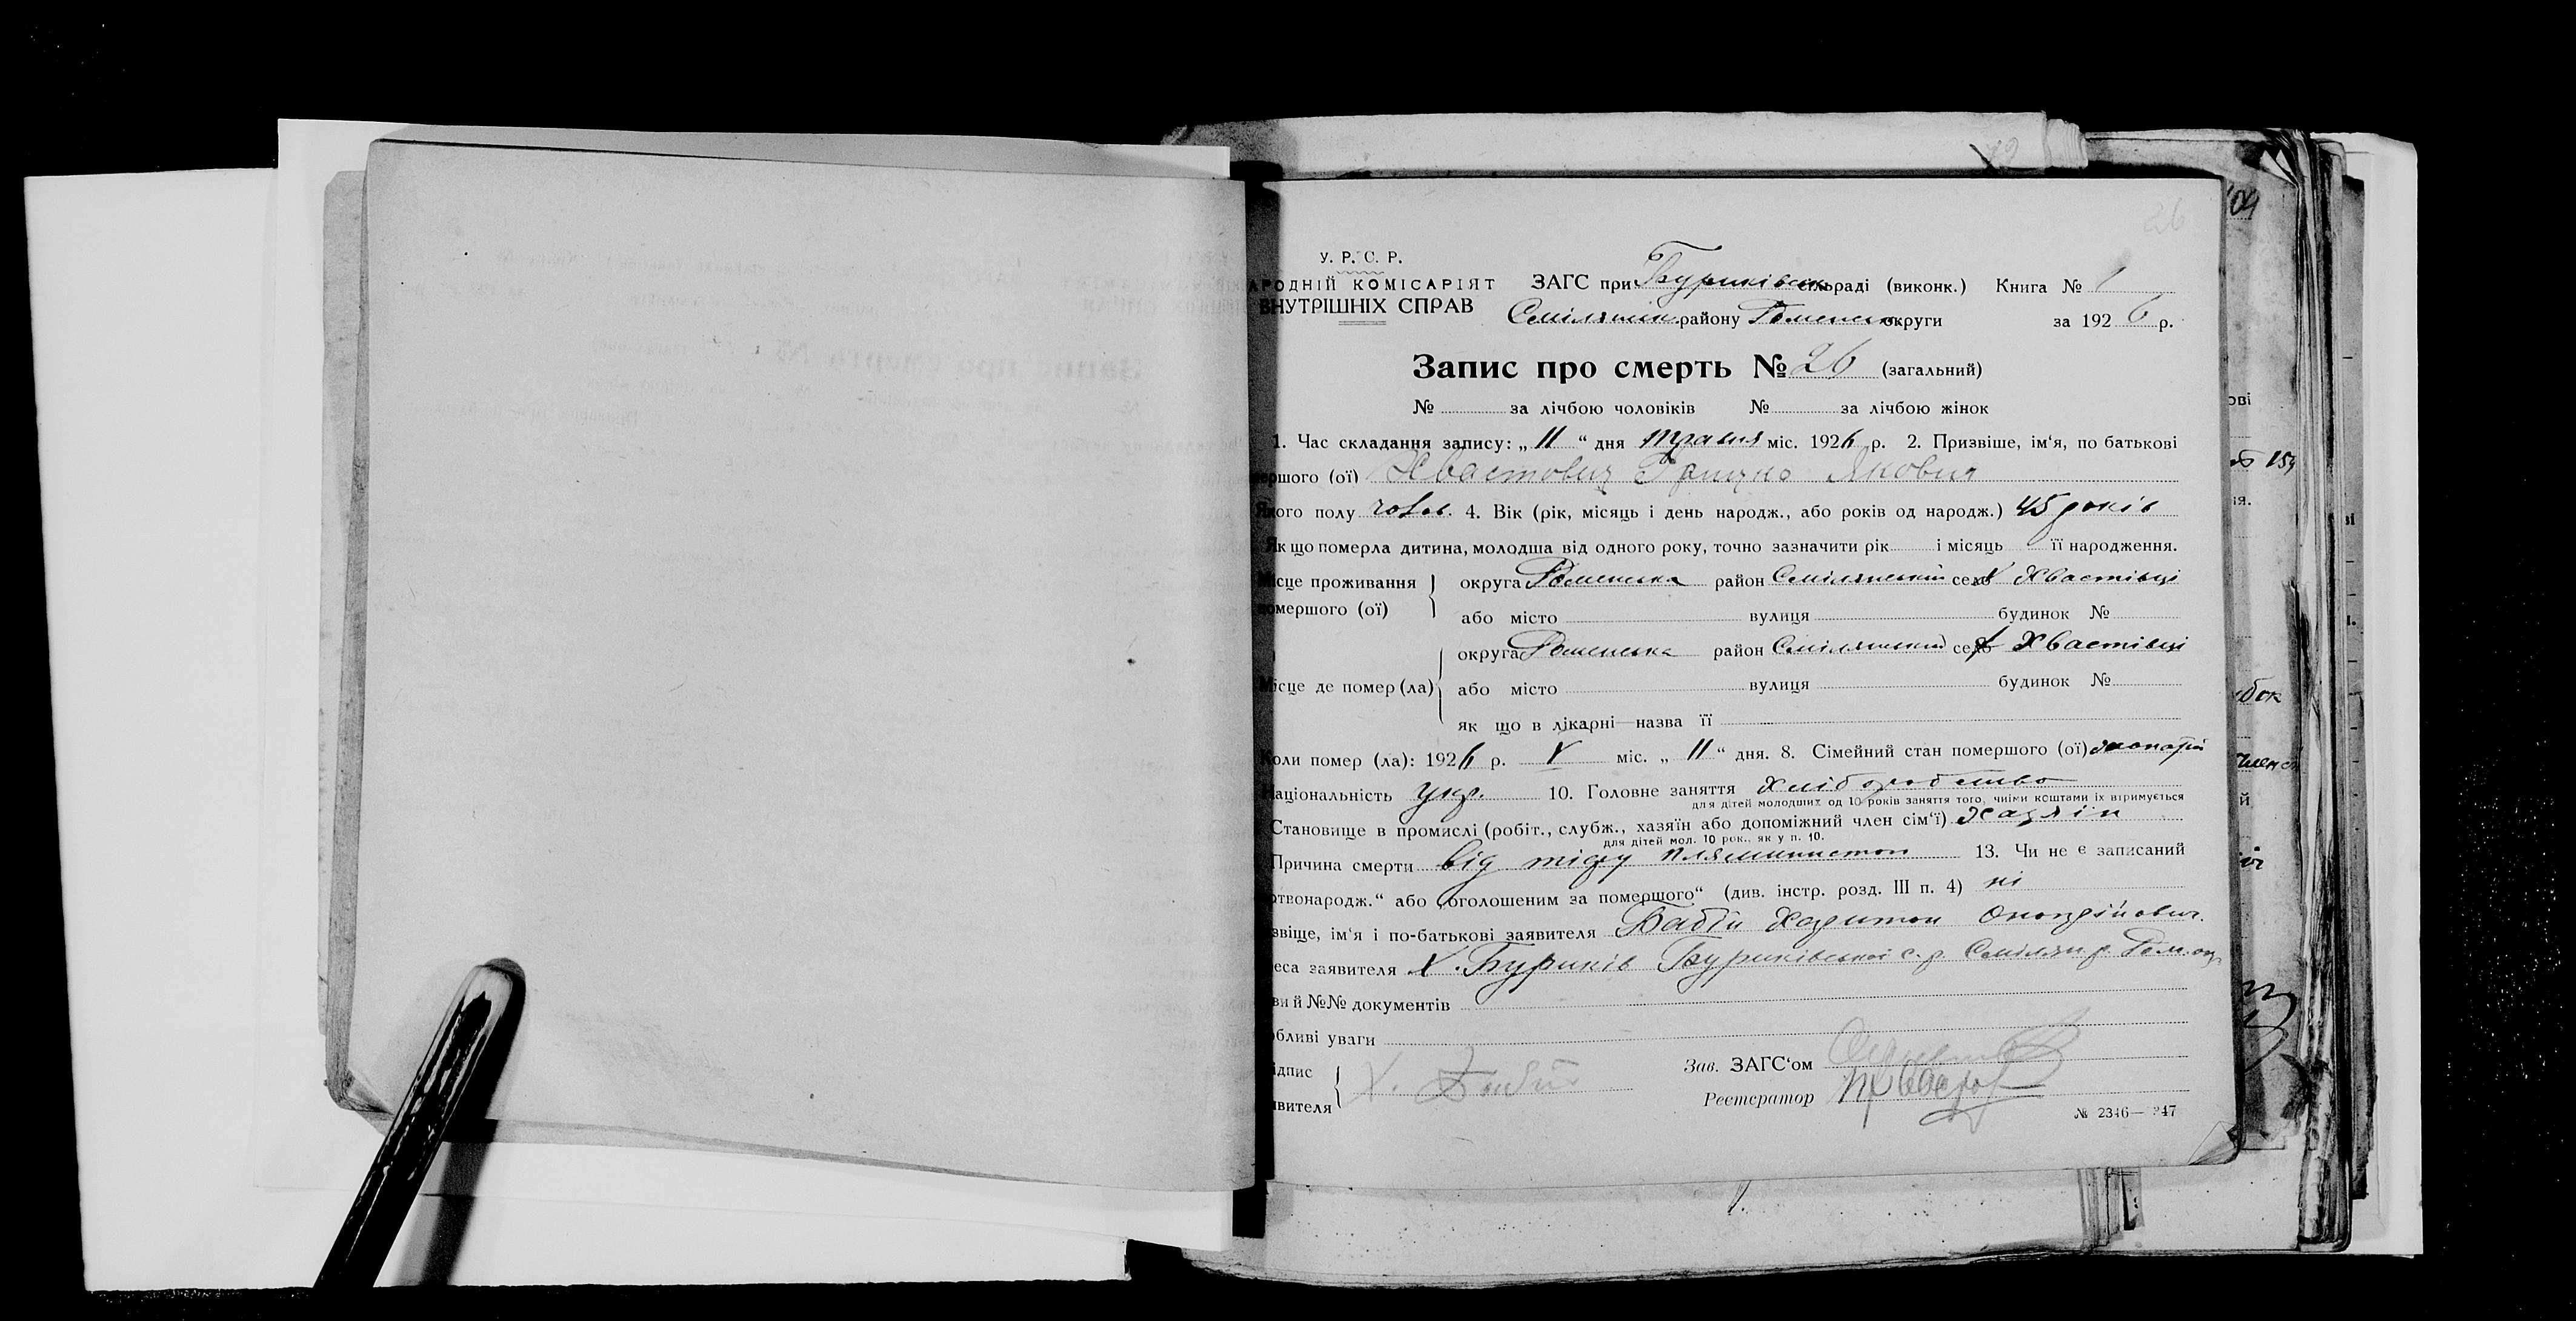 У. Р. С. Р.
АРОДНІЙ КОМІСАРІЯТ ЗАГС при Буриківськ сільраді (виконк.) Книга № 1
ВНУТРІШНІХ СПРАВ Смілянськ. району Роменськ округи за 1926 р.
26
Запис про смерть № 26 (загальний)
№ за лічбою чоловіків № за лічбою жінок
1. Час складання запису: „ 11 “ дня травня міс. 1926 р. 2. Призвіще, ім‘я, по батькові
ершого (ої) Хвастовец Грицко Якович
якого полу чолов. 4. Вік (рік, місяць і день народж., або років од народж.) 45 років
Як що померла дитина, молодша від одного року, точно зазначити рік і місяць її народження.
Місце проживання округа Роменська район Смілянській село х Хвастівці
помершого (ої) або місто вулиця будинок №
округа Роменська район Смілянський село х Хвастівці
Місце де помер (ла) або місто вулиця будинок №
як що в лікарні—назва її
Коли помер (ла): 1926 р. V міс. „ 11 “ дня. 8. Сімейний стан помершого (ої)
Національність укр. 10. Головне заняття хліборобство
для дітей молодших од 10 років заняття того, чиїми коштами їх втримується
Становище в промислі (робіт., служб., хазяїн або допоміжний член сім‘ї) Хазяін
для дітей мол. 10 рок., як у п. 10.
Причина смерти від 13. Чи не є записаний
ртвонародж.“ або „оголошеним за помершого“ (див. інстр. розд. III п. 4) ні
звіще, ім‘я і по-батькові заявителя Бабій Харитон
еса заявителя х. Буриків Буриківської с. р. Смілян р. Ром. окр
ви й №№ документів
обливі уваги
ідпис Х. Бабій Зав. ЗАГС‘ом
явителя Реєстратор
№ 2346—347